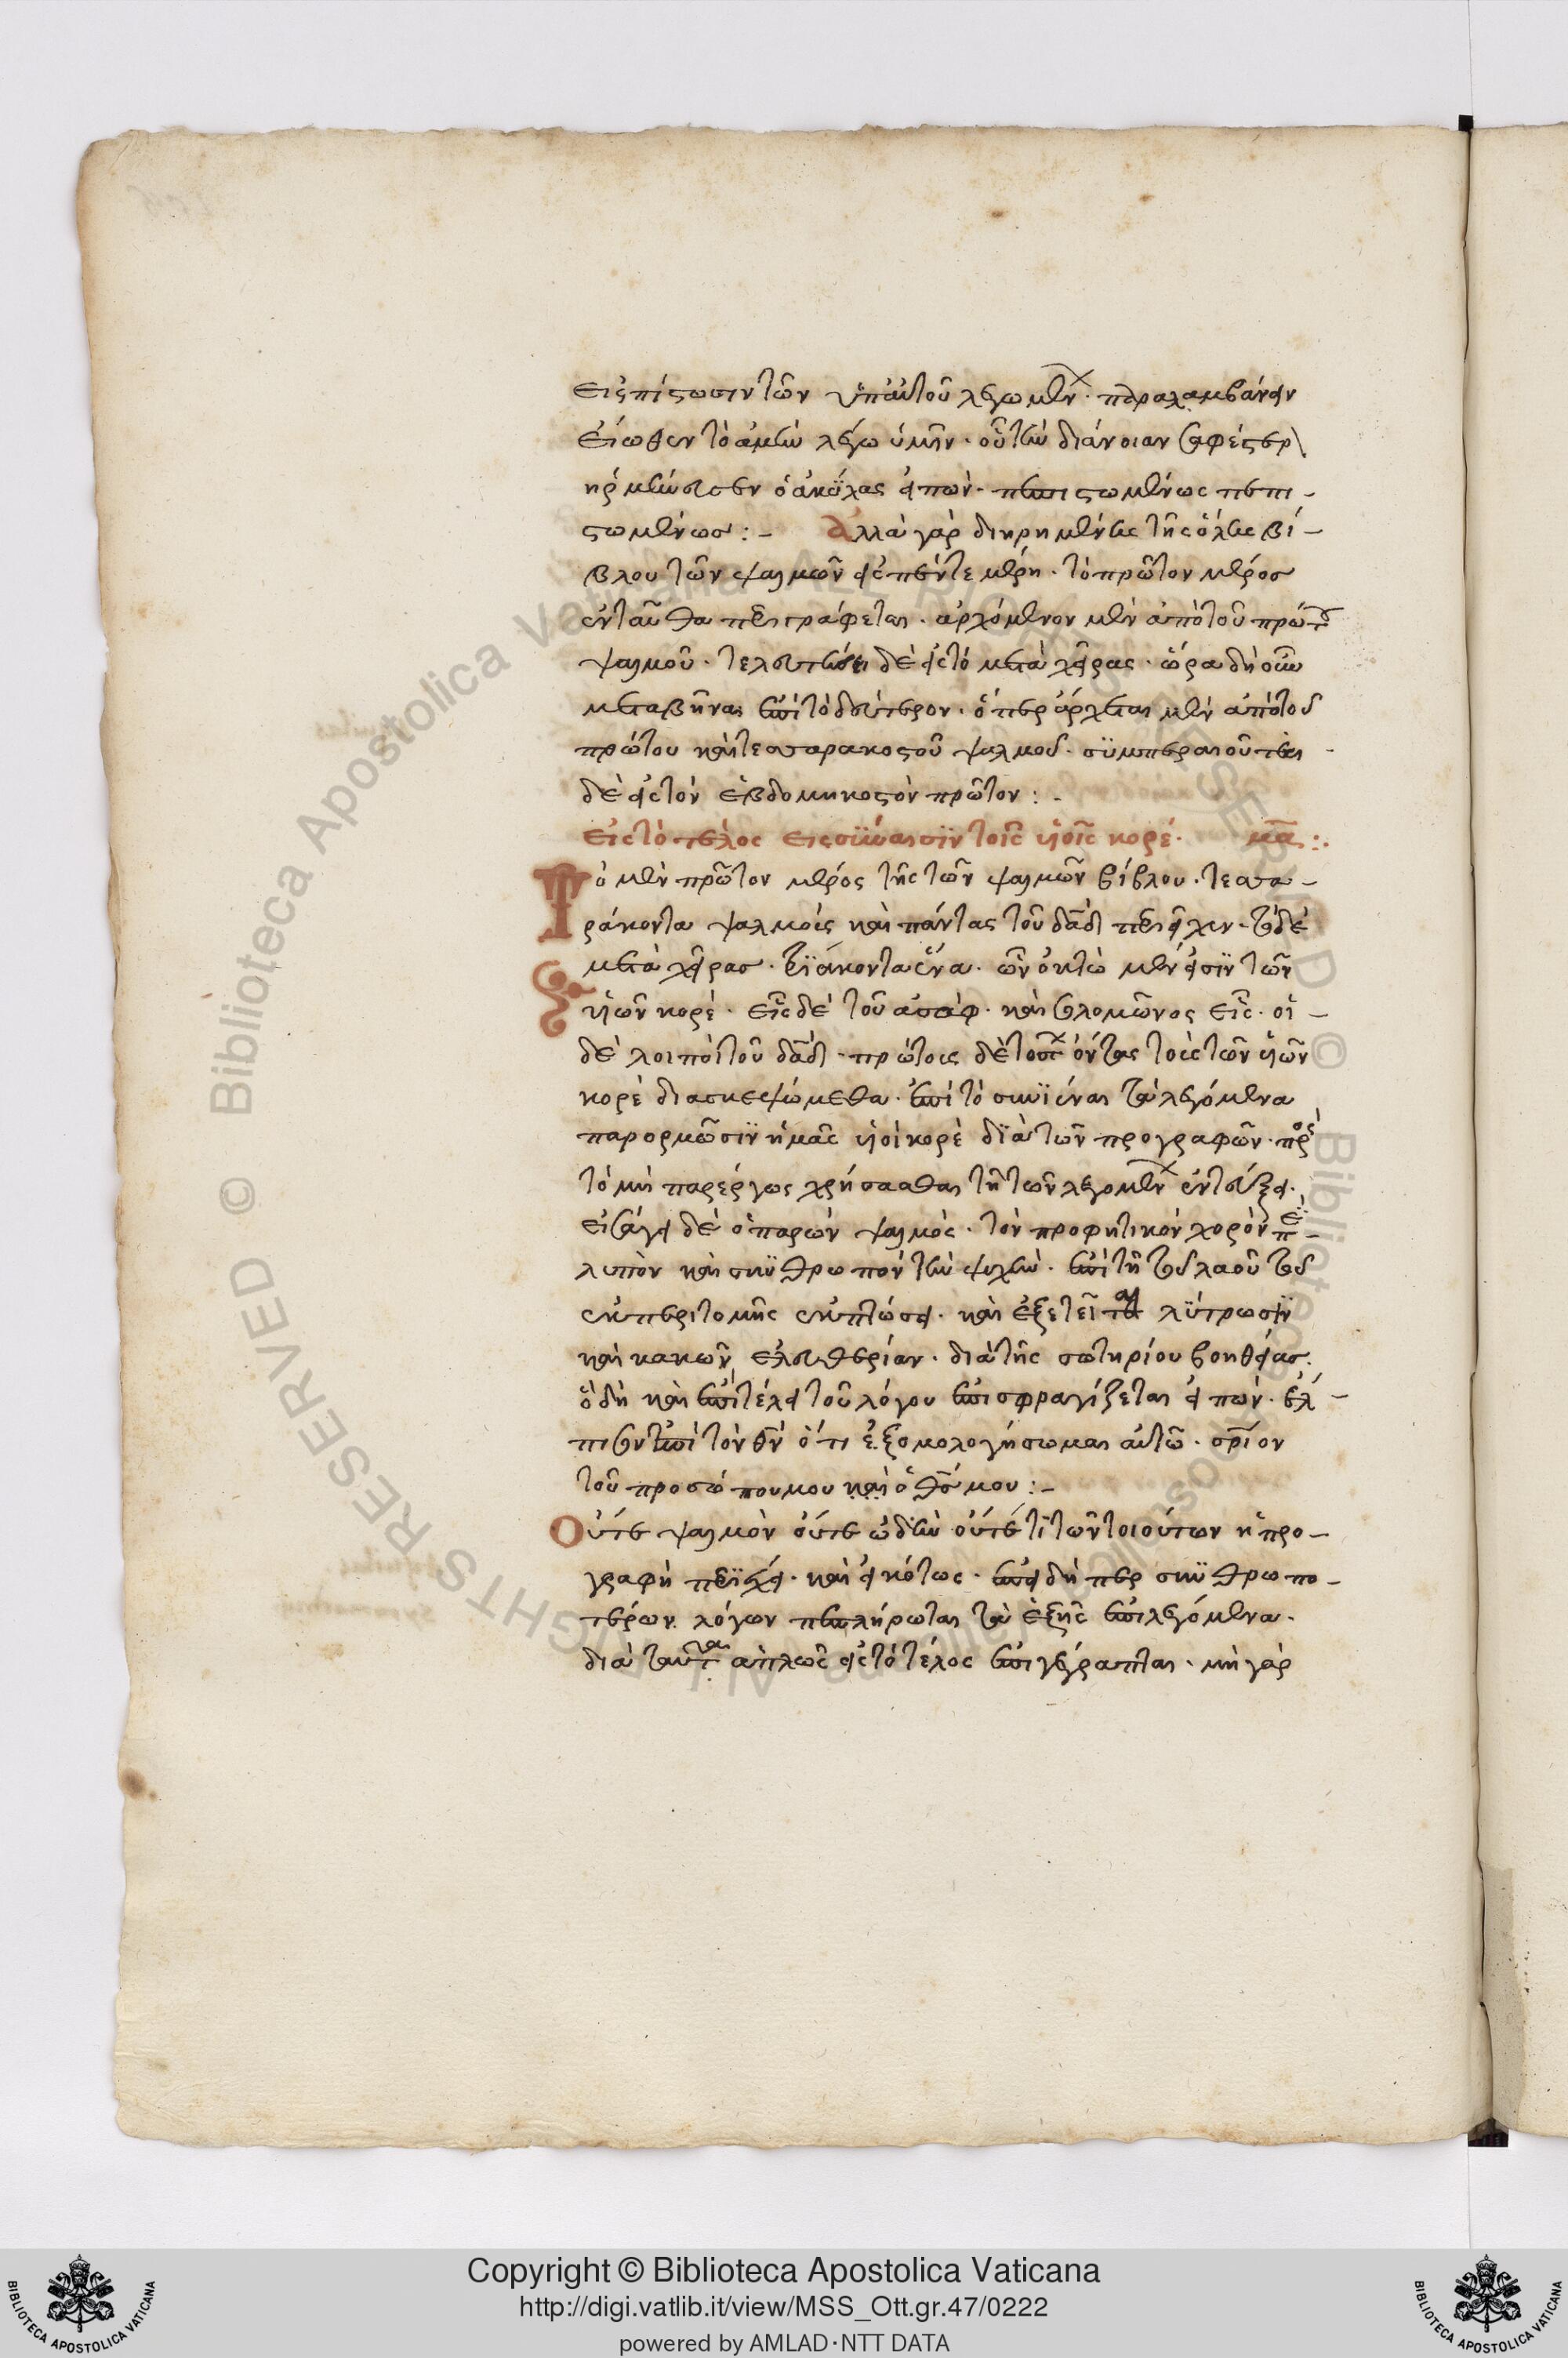 εἰς πίστωσιν τῶν ὑπ' αὐτοῦ λεγομένων· παραλαμβάνειν
εἴωθεν τὸ ἀμὴν λέγω ὑμῖν· οὗ τὴν διάνοιαν σαφέστερ
ἡρμήνευσεν ὁ ἀκύλας εἰπών· πεπιστωμένως πεπι-
στωμένως :- ἀλλὰ γὰρ διῃρημένης τῆς ὅλης βί-
βλου τῶν ψαλμῶν εἰς πέντε μέρη· τὸ πρῶτον μέρος
ἐνταῦθα περιγράφεται· ἀρχόμενον μὲν ἀπὸ τοῦ πρώτου
ψαλμοῦ· τελευτῶν δὲ εἰς τὸ μετὰ χεῖρας· ὥρα δὴ οὖν
μεταβῆναι ἐπὶ τὸ δεύτερον· ὅπερ ἄρχεται μὲν ἀπὸ τοῦ
πρώτου καὶ τεσσαρακοστοῦ ψαλμοῦ· συμπεραιοῦται
δὲ εἰς τὸν ἑβδομηκοστὸν πρῶτον :-
εἰς τὸ τέλος εἰς σύνεσιν τοῖς υἱοῖς κορέ· μα :·
Τὸ μὲν πρῶτον μέρος τῆς τῶν ψαλμῶν βίβλου· τεσσα-
ράκοντα ψαλμοὺς καὶ πάντας τοῦ δαδ περιεῖχεν· τὸ δὲ
μετὰ χεῖρας· τριάκοντα ἕνα· ὧν ὀκτὼ μὲν εἰσὶν τῶν
υἱῶν κορέ· εἷς δὲ τοῦ ἀσάφ· καὶ σολομῶνος εἷς· οἱ-
δὲ λοιποὶ τοῦ δαδ· πρώτους δὲ τούτων ὄντας τοὺς τῶν υἱῶν
κορὲ διασκεψώμεθα· ἐπὶ τὸ συνιέναι τὰ λεγόμενα
παρορμῶσιν ἡμᾶς υἱοὶ κορὲ διὰ τῶν προγραφῶν· πρὸς
τὸ μὴ παρέργως χρήσασθαι τῇ τῶν λεγομένων ἐντεύξει·
εἰσάγει δὲ ὁ παρὼν ψαλμός· τὸν προφητικὸν χορὸν περί-
λυπον καὶ σκυθρωπὸν τὴν ψυχήν· ἐπὶ τῇ τοῦ λαοῦ τοῦ
ἐκ περιτομῆς ἐκπτώσει· καὶ ἐξετεῖται λύτρωσιν
καὶ κακῶν ἐλευθερίαν· διὰ τῆς σωτηρίου βοηθείας·
ὃ δὴ καὶ ἐπὶ τέλει τοῦ λόγου ἐπισφραγίζεται εἰπών· ἔλ-
πισον ἐπὶ τὸν θν ὅτι ἐξομολογήσωμαι αὐτῶ· σριον
τοῦ προσώπου μου καὶ ὁ θς μου :-
Οὔτε ψαλμὸν οὔτε ὠδὴν οὔτέ τι τῶν τοιούτων ἡ προ-
γραφὴ περιέχει· καὶ εἰκότως· ἐπειδήπερ σκυθρωπο-
τέρων λόγων πεπλήρωται τὰ ἑξῆς ἐπιλεγόμενα·
διὰ ταῦτα ἁπλῶς εἰς τὸ τέλος ἐπιγέγραπται· μὴ γὰρ
Copyright © Biblioteca Apostolica Vaticana
http://digi.vatlib.it/view/MSS_Ott.gr.47/0222
powered by AMLAD·NTT DATA